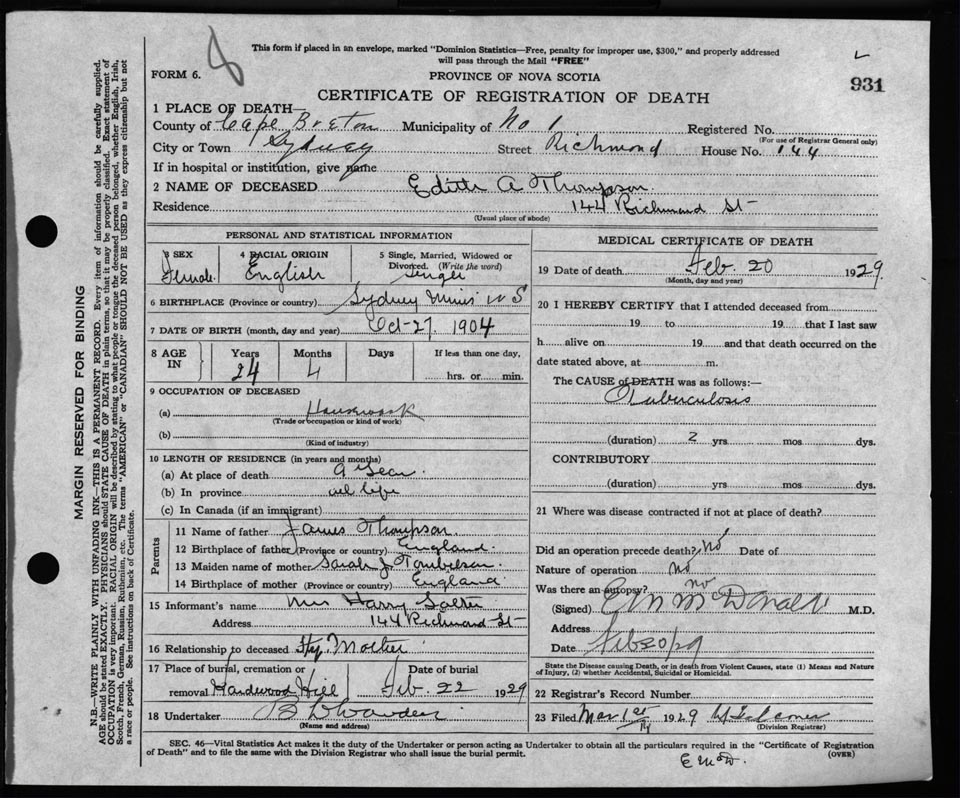 8
This form if placed in an envelope, marked "Dominion Statistics—Free, penalty for improper use, $300," and properly addressed
will pass through the Mail "FREE"
FORM 6. PROVINCE OF NOVA SCOTIA 931
CERTIFICATE OF REGISTRATION OF DEATH
1 PLACE OF DEATH—
County of Cape Breton Municipality of No 1 Registered No.
(For use of Registrar General only)
City or Town Sydney Street Richmond House No. 144
If in hospital or institution, give name
2 NAME OF DECEASED Edith A Thompson
Residence 144 Richmond St
(Usual place of abode)
PERSONAL AND STATISTICAL INFORMATION
3 SEX 4 RACIAL ORIGIN 5 Single, Married, Widowed or
Divorced. (Write the word)
Female English Single
6 BIRTHPLACE (Province or country) Sydney Mines N S
7 DATE OF BIRTH (month, day and year) Oct-27 1904
8 AGE IN Years Months Days If less than one day,
24 4 hrs. or min.
9 OCCUPATION OF DECEASED
(a) Housework
(Trade or occupation or kind of work)
(b)
(Kind of industry)
10 LENGTH OF RESIDENCE (in years and months)
(a) At place of death a year
(b) In province all life
(c) In Canada (if an immigrant)
Parents
11 Name of father James Thompson
12 Birthplace of father (Province or country) England
13 Maiden name of mother Sarah J
14 Birthplace of mother (Province or country) England
15 Informant's name Mrs Harry Salter
Address 144 Richmond St
16 Relationship to deceased Step Mother
17 Place of burial, cremation or Date of burial
removal Hardwood Hill Feb. 22 1929
18 Undertaker
(Name and address)
MEDICAL CERTIFICATE OF DEATH
19 Date of death Feb. 20 1929
(Month, day and year)
20 I HEREBY CERTIFY that I attended deceased from
19 to 19 that I last saw
h alive on 19 and that death occurred on the
date stated above, at m.
The CAUSE of DEATH was as follows:—
Tuberculosis
(duration) 2 yrs mos dys.
CONTRIBUTORY
(duration) yrs mos dys.
21 Where was disease contracted if not at place of death?
Did an operation precede death? No Date of
Nature of operation no
Was there an autopsy? no
(Signed) McDonald M.D.
Address
Date Feb 20/29
State the Disease causing Death, or in death from Violent Causes, state (1) Means and Nature
of Injury, (2) whether Accidental, Suicidal or Homicidal.
22 Registrar's Record Number
23 Filed Mar 1st 1929
(Division Registrar)
SEC. 46—Vital Statistics Act makes it the duty of the Undertaker or person acting as Undertaker to obtain all the particulars required in the "Certificate of Registration
of Death" and to file the same with the Division Registrar who shall issue the burial permit. (OVER)
MARGIN RESERVED FOR BINDING
N.B.—WRITE PLAINLY WITH UNFADING INK—THIS IS A PERMANENT RECORD. Every item of information should be carefully supplied.
AGE should be stated EXACTLY. PHYSICIANS should STATE CAUSE OF DEATH in plain terms, so that it may be properly classified. Exact statement of
OCCUPATION is very important. RACIAL ORIGIN will be described by stating to what people or tongue the deceased person belonged, whether English, Irish,
Scotch, French, German, Russian, Ruthenian, etc. The terms "AMERICAN" or "CANADIAN" SHOULD NOT BE USED as they express citizenship but not
a race or people. See instructions on back of Certificate.